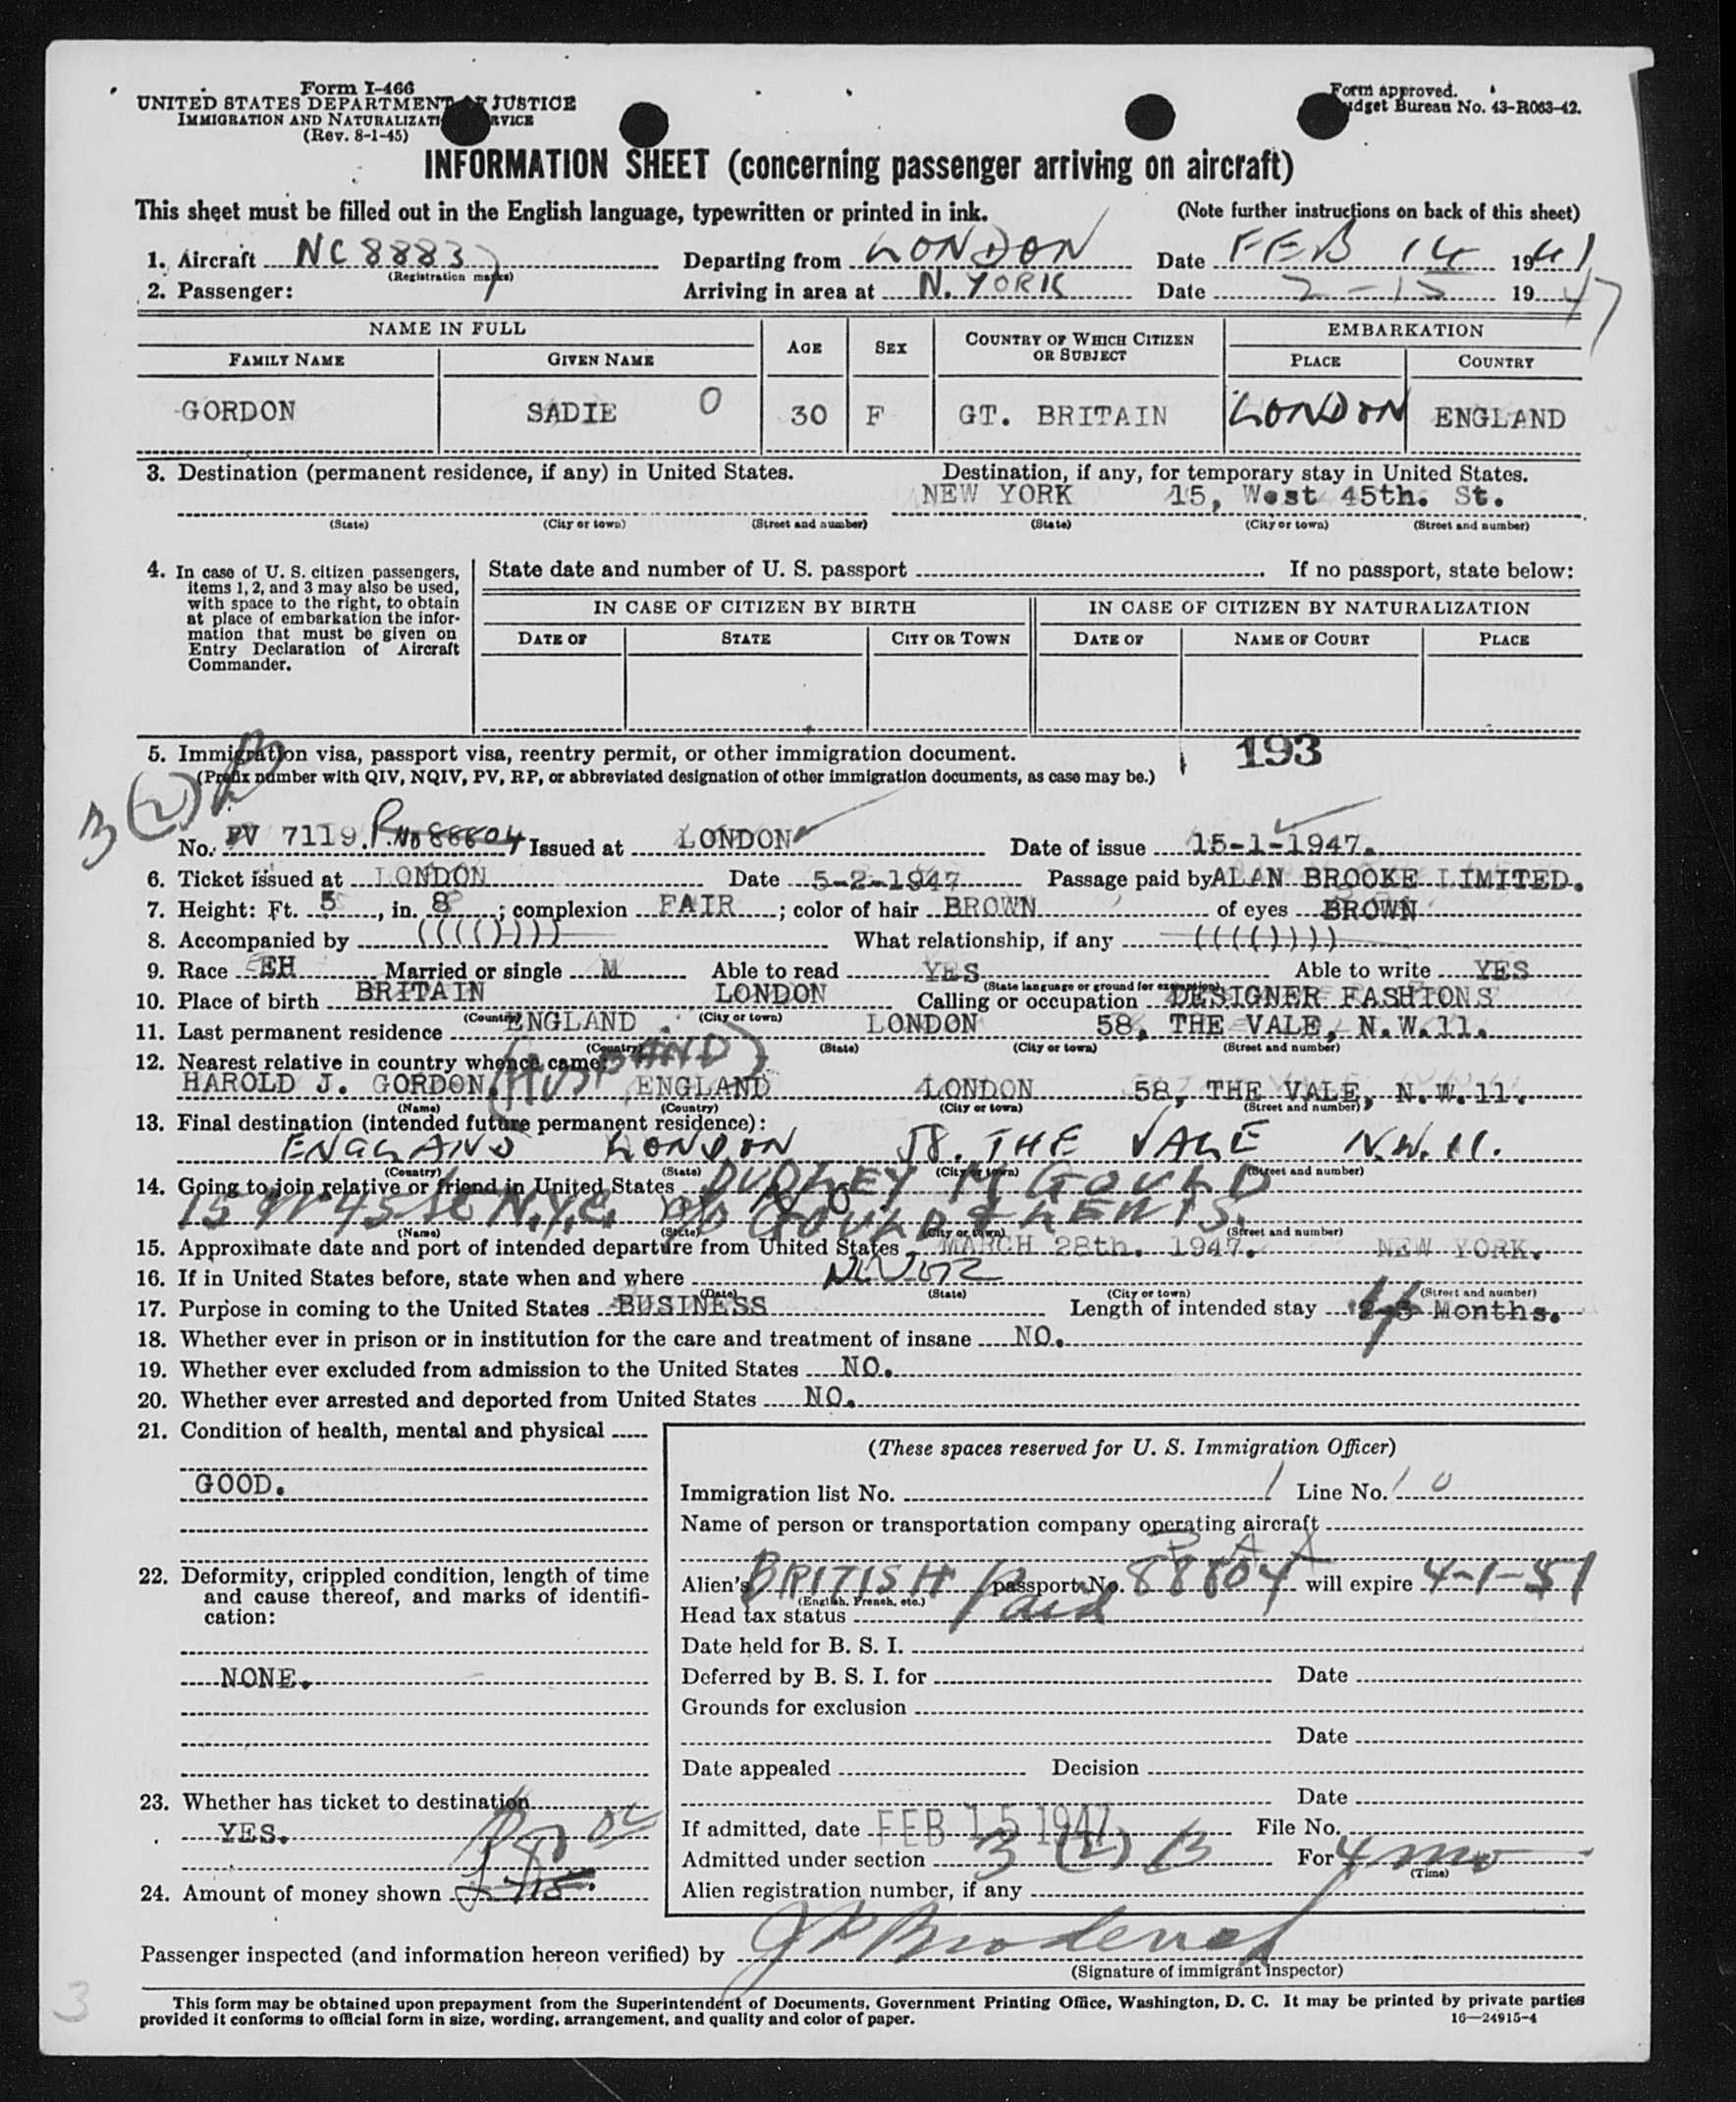 Form I-466
UNITED STATES DEPARTMENT OF JUSTICE
IMMIGRATION AND NATURALIZATION SERVICE
(Rev. 8-1-45)
Form approved.
Budget Bureau No. 43-R063-42.
INFORMATION SHEET (concerning passenger arriving on aircraft)
This sheet must be filled out in the English language, typewritten or printed in ink. (Note further instructions on back of this sheet)
1. Aircraft NC 88837 Departing from LONDON Date FEB 14 1947
(Registration marks)
2. Passenger: Arriving in area at N. YORK Date 2-15 1947
NAME IN FULL AGE SEX COUNTRY OF WHICH CITIZEN OR SUBJECT EMBARKATION
FAMILY NAME GIVEN NAME PLACE COUNTRY
GORDON SADIE O 30 F GT. BRITAIN LONDON ENGLAND
3. Destination (permanent residence, if any) in United States. Destination, if any, for temporary stay in United States.
NEW YORK 15, West 45th. St.
(State) (City or town) (Street and number) (State) (City or town) (Street and number)
4. In case of U. S. citizen passengers,
items 1, 2, and 3 may also be used,
with space to the right, to obtain
at place of embarkation the infor-
mation that must be given on
Entry Declaration of Aircraft
Commander.
State date and number of U. S. passport If no passport, state below:
IN CASE OF CITIZEN BY BIRTH IN CASE OF CITIZEN BY NATURALIZATION
DATE OF STATE CITY OR TOWN DATE OF NAME OF COURT PLACE
5. Immigration visa, passport visa, reentry permit, or other immigration document. 193
(Prefix number with QIV, NQIV, PV, RP, or abbreviated designation of other immigration documents, as case may be.)
3 (2) B
No. PV 7119. P. No 88804 Issued at LONDON Date of issue 15-1-1947.
6. Ticket issued at LONDON Date 5-2-1947 Passage paid by ALAN BROOKE LIMITED.
7. Height: Ft. 5, in. 8; complexion FAIR; color of hair BROWN of eyes BROWN
8. Accompanied by (((()))) What relationship, if any (((())))
9. Race EH Married or single M Able to read YES Able to write YES
(State language or ground for exemption)
10. Place of birth BRITAIN LONDON Calling or occupation DESIGNER FASHIONS
(Country) (City or town)
11. Last permanent residence ENGLAND. LONDON 58, THE VALE, N.W.11.
(Country) (State) (City or town) (Street and number)
12. Nearest relative in country whence came:
HAROLD J. GORDON. (HUSBAND) ENGLAND LONDON 58, THE VALE, N.W.11.
(Name) (Country) (City or town) (Street and number)
13. Final destination (intended future permanent residence):
ENGLAND LONDON 58. THE VALE N.W.11.
(Country) (State) (City or town) (Street and number)
14. Going to join relative or friend in United States DUDLEY M GOULD
15 W 45 St N.Y.C. c/o GOULD & LEWIS.
(Name) (State) (City or town) (Street and number)
15. Approximate date and port of intended departure from United States MARCH 28th. 1947. NEW YORK.
16. If in United States before, state when and where NEVER
(Date) (State) (City or town) (Street and number)
17. Purpose in coming to the United States BUSINESS Length of intended stay 4 2-3 Months.
18. Whether ever in prison or in institution for the care and treatment of insane NO.
19. Whether ever excluded from admission to the United States NO.
20. Whether ever arrested and deported from United States NO.
21. Condition of health, mental and physical
GOOD.
22. Deformity, crippled condition, length of time
and cause thereof, and marks of identifi-
cation:
NONE.
23. Whether has ticket to destination
YES.
24. Amount of money shown
(These spaces reserved for U. S. Immigration Officer)
Immigration list No. 1 Line No. 10
Name of person or transportation company operating aircraft
P A A
Alien's BRITISH passport No. 88804 will expire 4-1-51
(English, French, etc.)
Head tax status Paid
Date held for B. S. I.
Deferred by B. S. I. for Date
Grounds for exclusion
Date
Date appealed Decision
Date
If admitted, date FEB 15 1947 File No.
Admitted under section 3 (2) B For 4 mo
(Time)
Alien registration number, if any
Passenger inspected (and information hereon verified) by
(Signature of immigrant inspector)
3
This form may be obtained upon prepayment from the Superintendent of Documents, Government Printing Office, Washington, D. C. It may be printed by private parties
provided it conforms to official form in size, wording, arrangement, and quality and color of paper. 16—24915-4